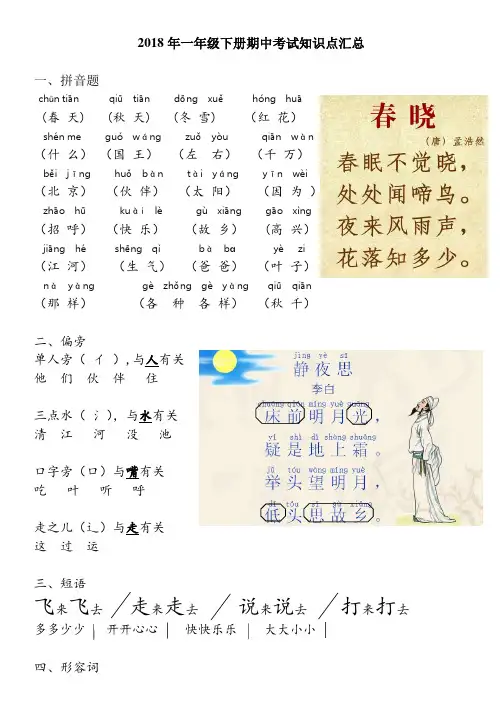 2018 年一年级下册期中考试知识点汇总
一、拼音题
chūn tiān qiū tiān dōng xuě hóng huā
（春 天） （秋 天） （冬 雪） （红 花）
shén me guó wáng zuǒ yòu qiān wàn
（什 么）（国 王） （左 右） （千 万）
běi jīng huǒ bàn tài yáng yīn wèi
（北 京） （伙 伴） （太 阳） （因 为 ）
zhāo hū kuài lè gù xiāng gāo xìng
（招 呼） （快 乐） （故 乡） （高 兴）
jiāng hé shēng qì bà ba yè zi
（江 河） （生 气） （爸 爸） （叶 子）
nà yàng gè zhǒng gè yàng qiū qiān
（那 样） （各 种 各 样） （秋 千）
春 晓
（唐）孟浩然
春眠不觉晓，
处处闻啼鸟。
夜来风雨声，
花落知多少。
二、偏旁
单人旁（ 亻 ）,与人有关
他 们 伙 伴 住
三点水（ 氵）， 与水有关
清 江 河 没 池
口字旁（口）与嘴有关
吃 叶 听 呼
走之儿（辶）与走有关
这 过 运
jìng yè sī
静 夜 思
李白
chuáng qián míng yuè guāng
床 前 明 月 光 ，
yí shì dì shàng shuāng
疑 是 地 上 霜 。
jǔ tóu wàng míng yuè
举 头 望 明 月 ，
dī tóu sī gù xiāng
低 头 思 故 乡 。
三、短语
飞来飞去 / 走来走去 / 说来说去 / 打来打去
多多少少 | 开开心心 | 快快乐乐 | 大大小小 |
四、形容词